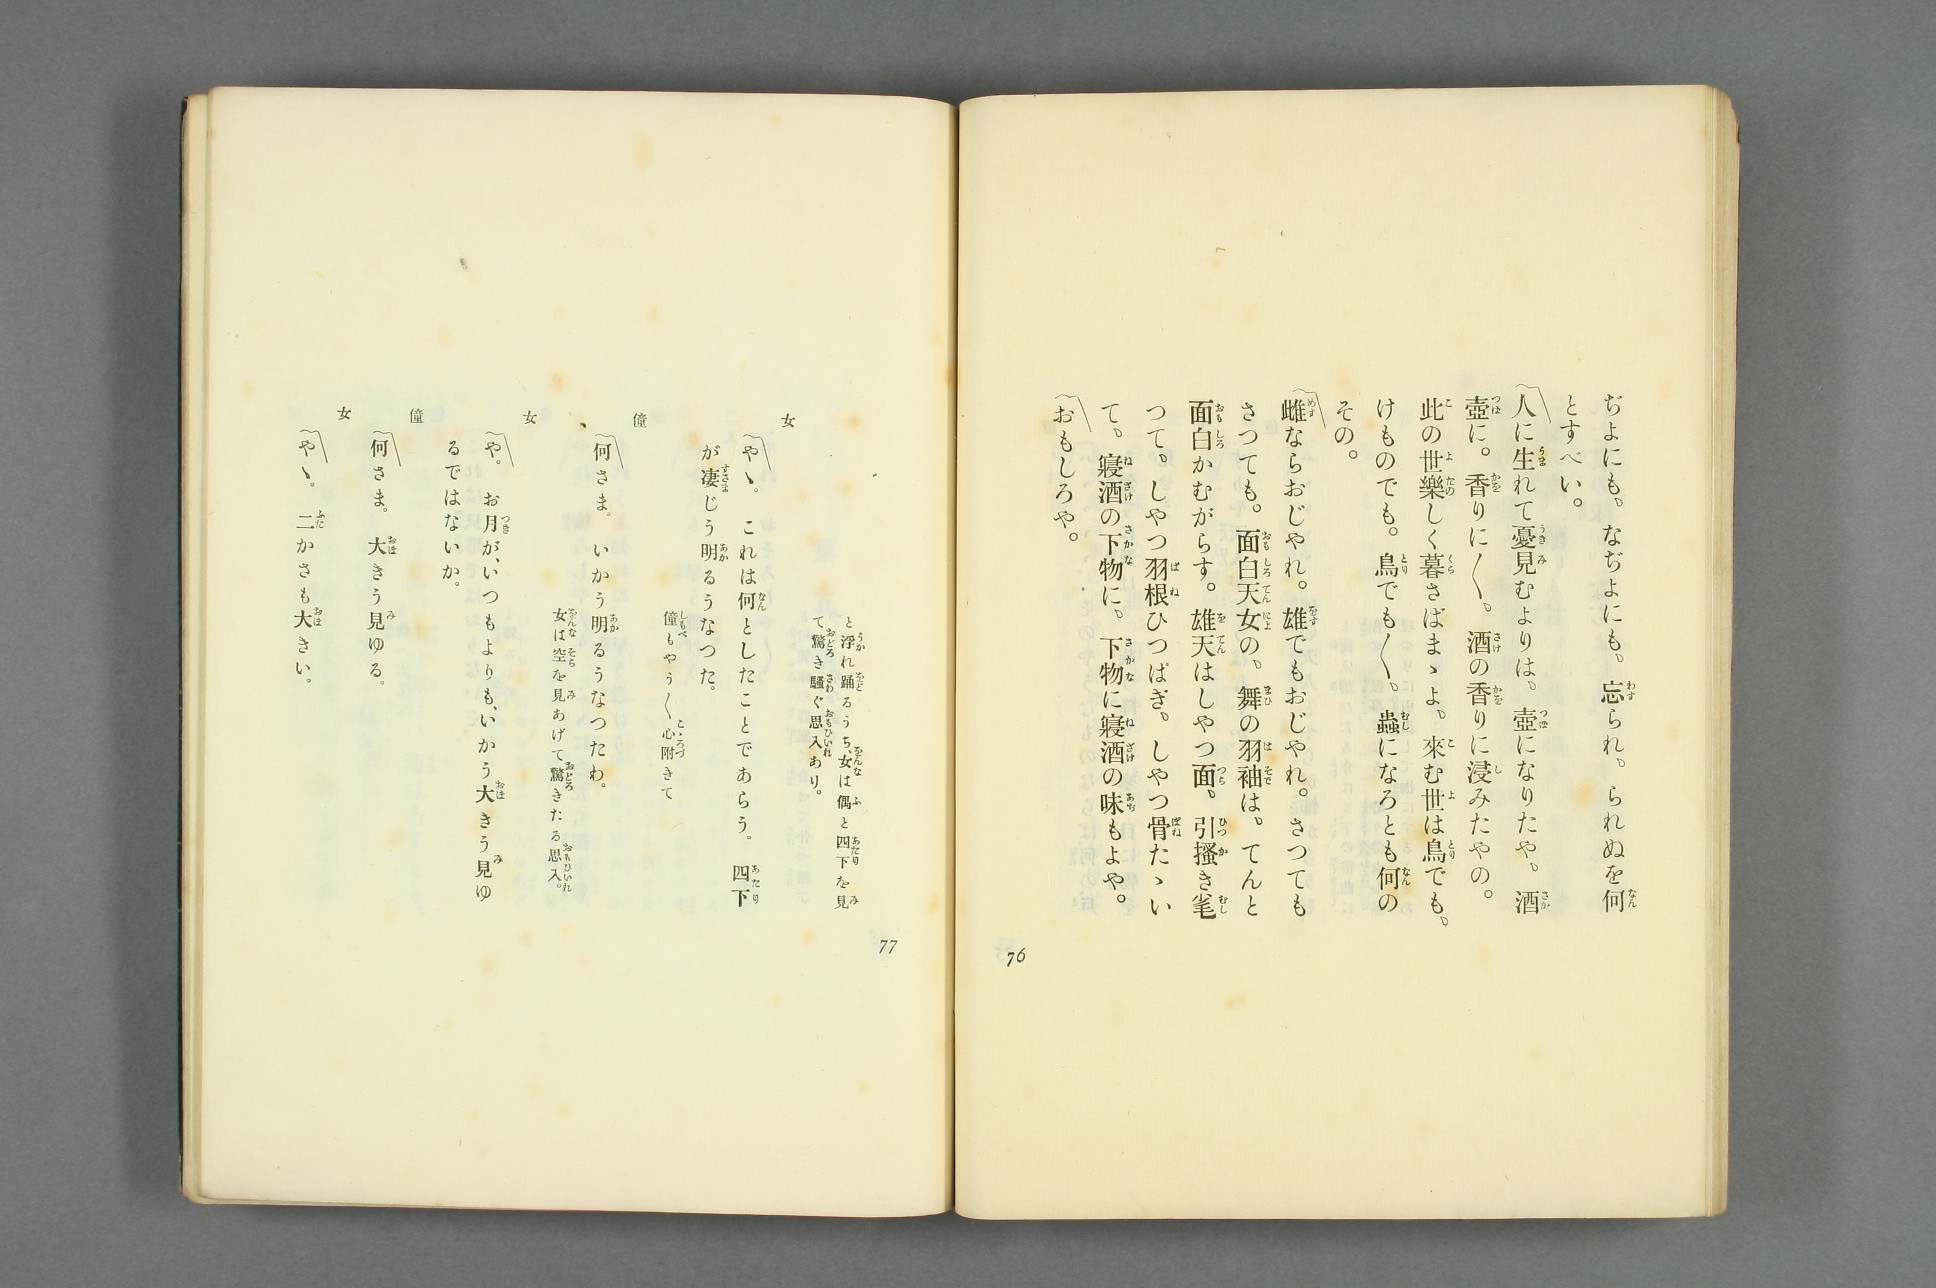 ぢよにも、なぢよにも、忘られ、られぬを何
とすべい。
〽人に生れて憂見むよりは、壺になりたや、酒
壺に。香りに〱。酒の香りに浸みたやの。
此の世樂しく暮さばまゝよ、來む世は鳥でも、
けものでも。鳥でも〱。蟲になろとも何の
その。
〽雌ならおじやれ。雄でもおじやれ。さつても
さつても。面白天女の、舞の羽袖は、てんと
面白かむがらす。雄天はしやつ面、引搔き毟
つて、しやつ羽根ひつぱぎ。しやつ骨たゝい
て、寢酒の下物に、下物に寢酒の味もよや。
〽おもしろや。
76
と浮れ踊るうち、女は偶と四下を見
て驚き騷ぐ思入あり。
女
〽やゝ。これは何としたことであらう。四下
が凄じう明るうなつた。
僮もやう〱心附きて
僮
〽何さま。いかう明るうなつたわ。
女は空を見あげて驚きたる思入。
女
〽や。お月が、いつもよりも、いかう大きう見ゆ
るではないか。
僮
〽何さま。大きう見ゆる。
女
〽やゝ。二かさも大きい。
77